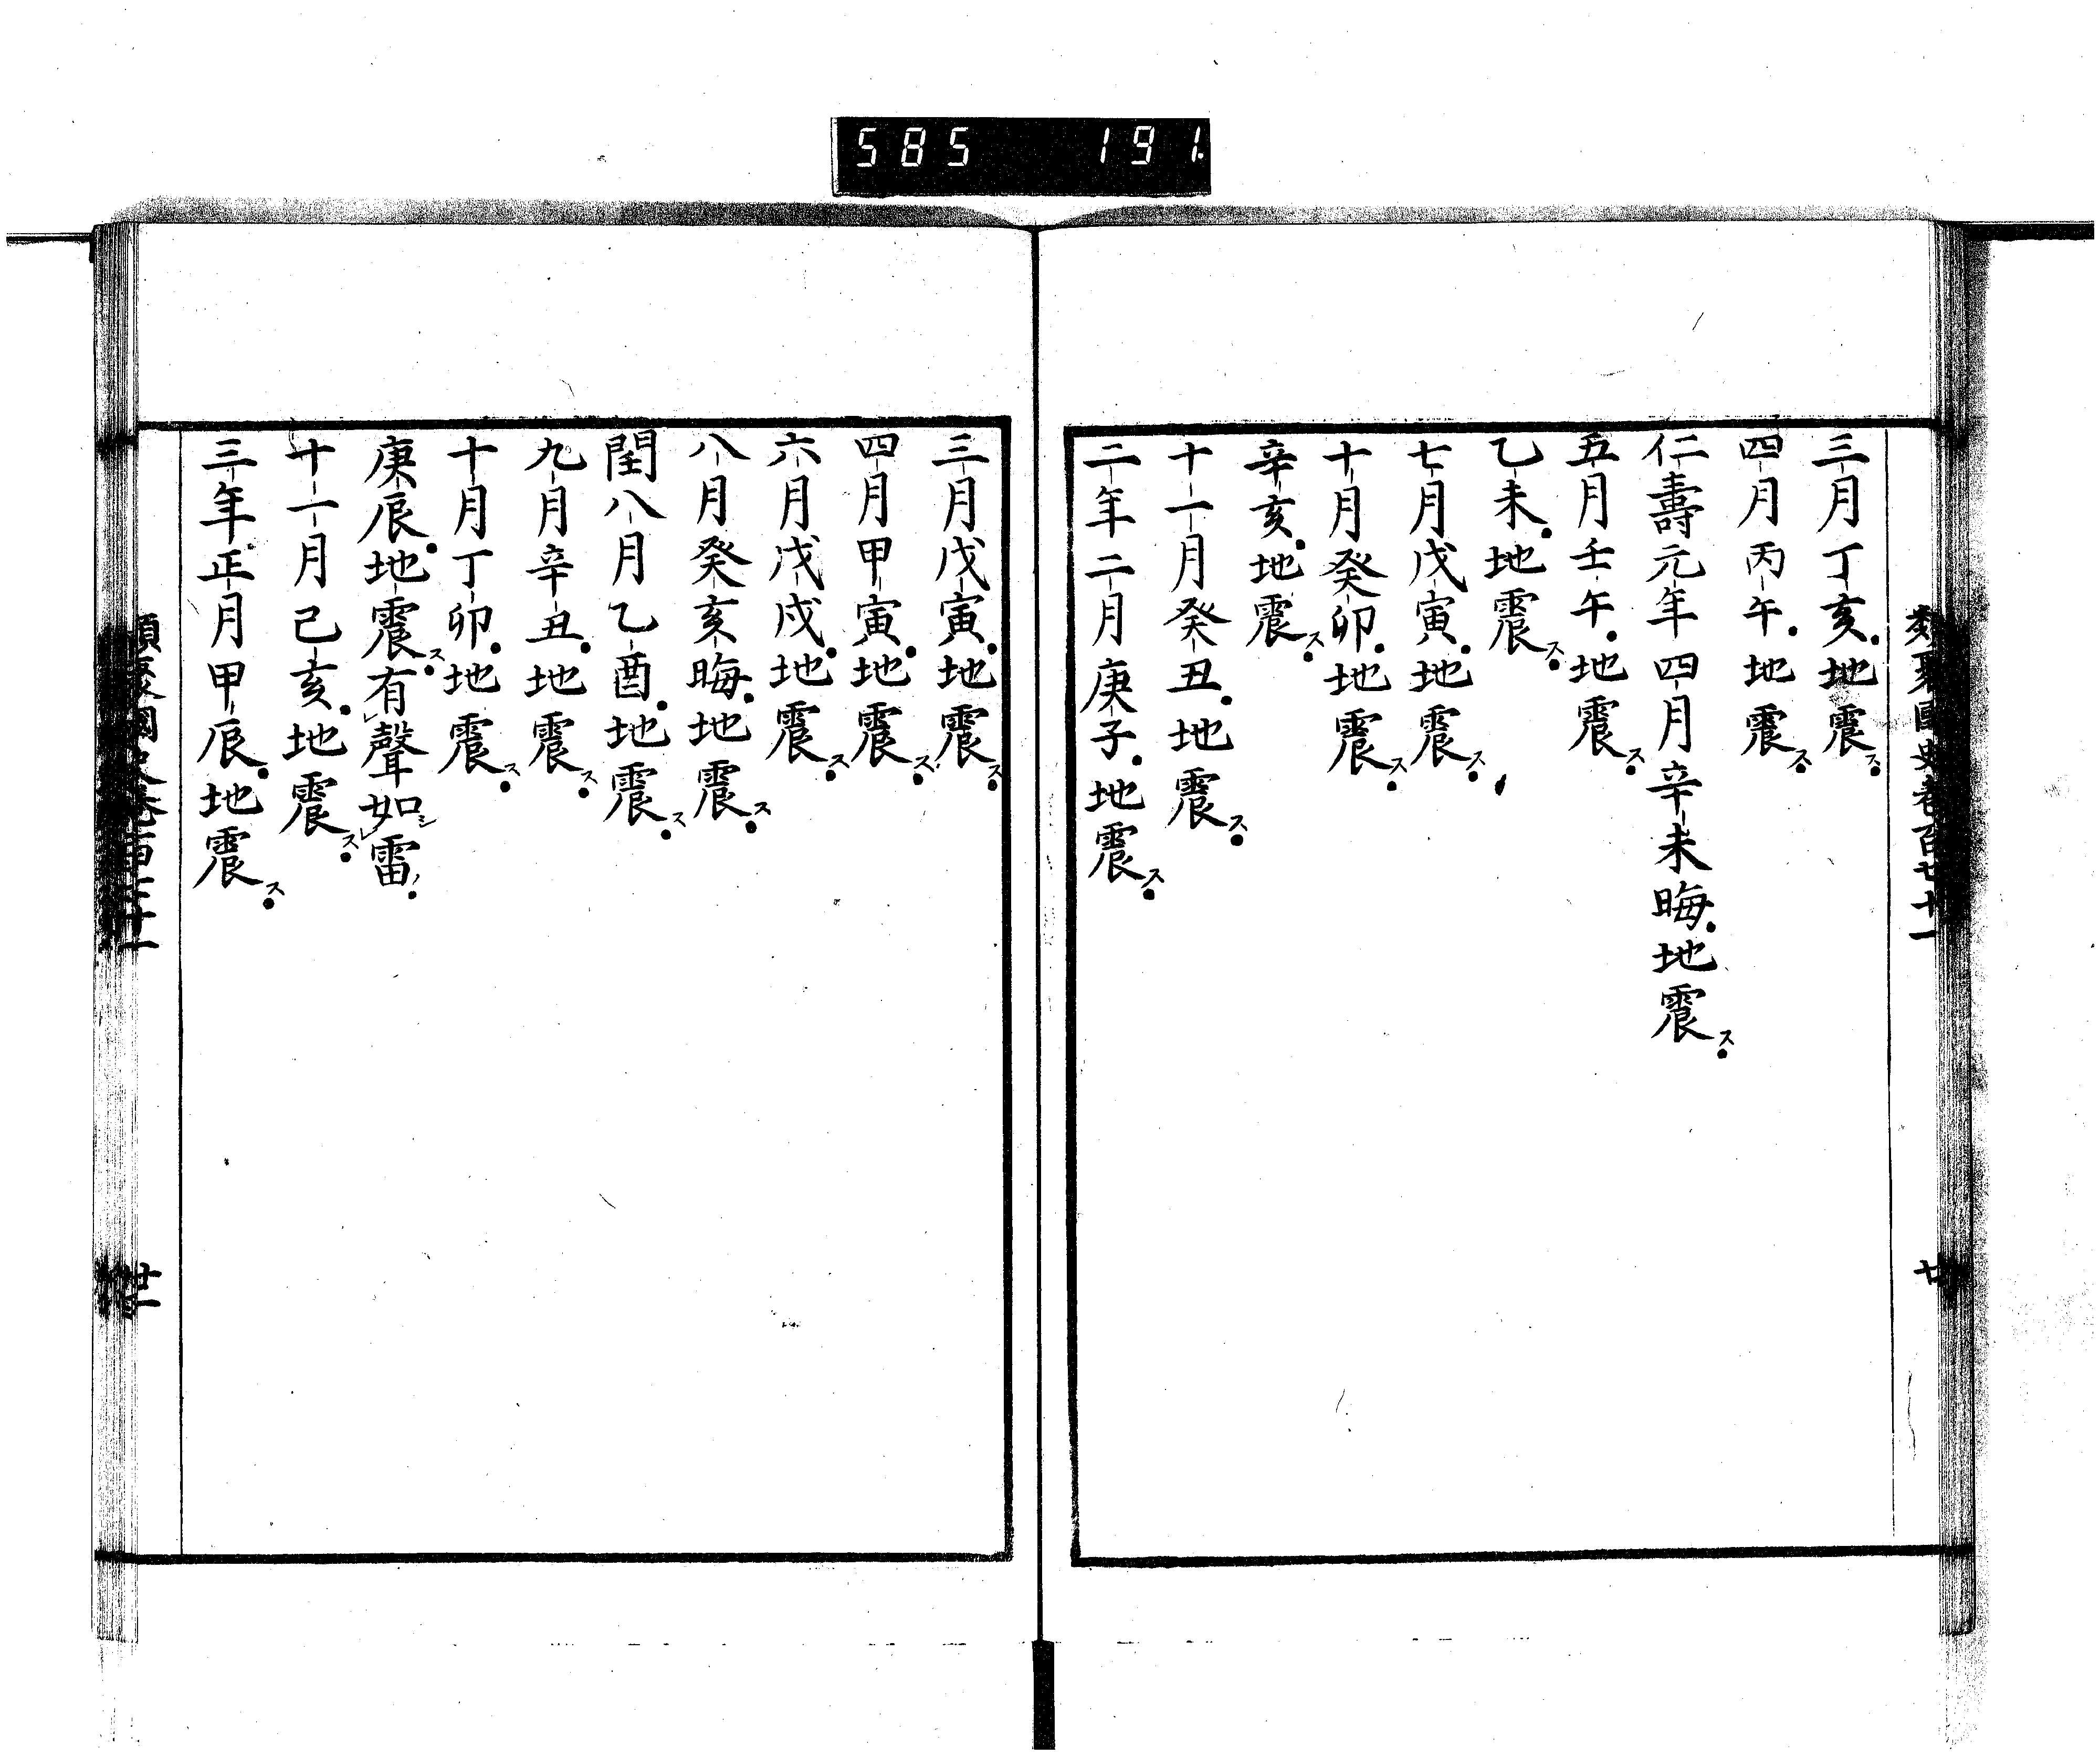 585 191
類聚國史卷百七十一
廿
三月丁亥地震ス
四月丙午地震ス
仁壽元年四月辛未晦地震ス
五月壬午地震ス
乙未地震ス
七月戊寅地震ス
十月癸卯地震ス
辛亥地震ス
十一月癸丑地震ス
二年二月庚子地震ス
三月戊寅地震ス
四月甲寅地震ス
六月戊戌地震ス
八月癸亥晦地震ス
閏八月乙酉地震ス
九月辛丑地震ス
十月丁卯地震ス
庚辰地震ス有聲如シ雷ノ
十一月己亥地震ス
三年正月甲辰地震ス